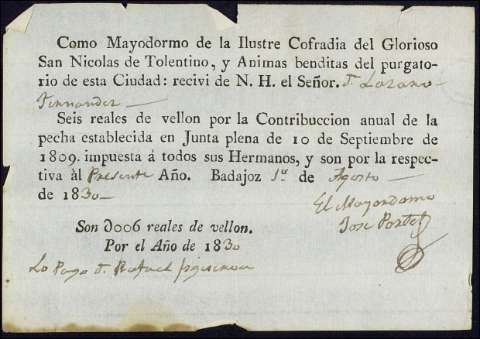 Como Mayodormo de la Ilustre Cofradia del Glorioso
San Nicolas de Tolentino, y Animas benditas del purgato-
rio de esta Ciudad: recivi de N. H. el Señor. D. Lozano
Fernandez
Seis reales de vellon por la Contribuccion anual de la
pecha establecida en Junta plena de 10 de Septiembre de
1809. impuesta á todos sus Hermanos, y son por la respec-
tiva àl Presente Año. Badajoz 1º de Agosto
de 1830
El Mayordomo
Son 0006 reales de vellon.
Jose
Por el Año de 1830
Lo Pago D. Rafael